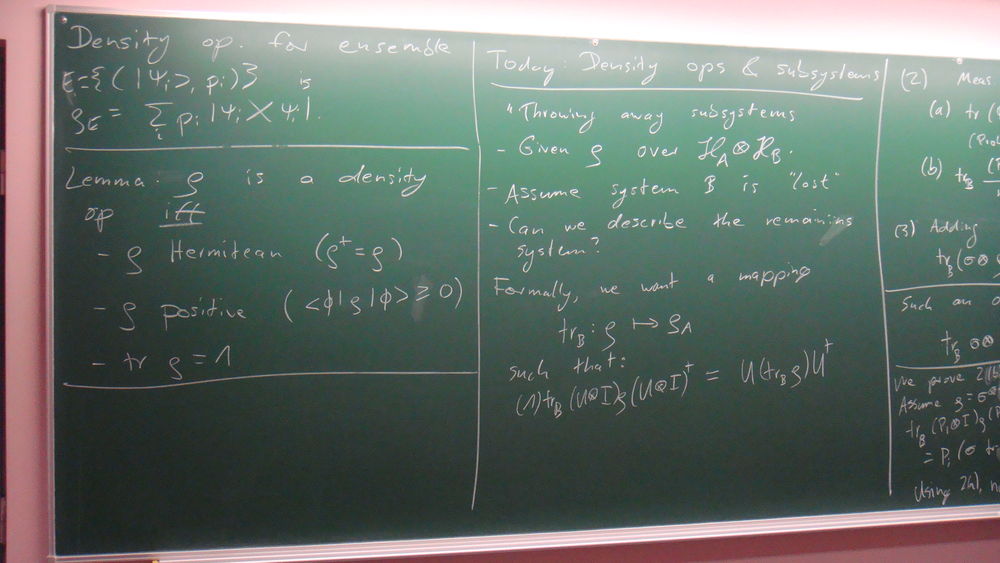 Density op. for ensemble
E={(|Ψᵢ>, pᵢ)} is
ρ_E = Σᵢ pᵢ |Ψᵢ><Ψᵢ|.
Lemma: ρ is a density
op iff
- ρ Hermitean (ρ† = ρ)
- ρ positive (<ϕ|ρ|ϕ> ≥ 0)
- tr ρ = 1
Today: Density ops & subsystems
"Throwing away subsystems
- Given ρ over ℋ_A ⊗ ℋ_B.
- Assume system B is "lost"
- Can we describe the remaining
system?
Formally, we want a mapping
tr_B : ρ ↦ ρ_A
such that:
(1) tr_B (U⊗I)ρ(U⊗I)† = U(tr_B ρ)U†
(2) Meas
(a) tr (
(Prob
(b) tr_B
(3) Adding
tr_B (σ⊗
Such an o
tr_B σ⊗
We prove 2(b)
Assume ρ = σ⊗
tr_B (Pᵢ⊗I)ρ(P
= Pᵢ (σ tr
Using 2(a),